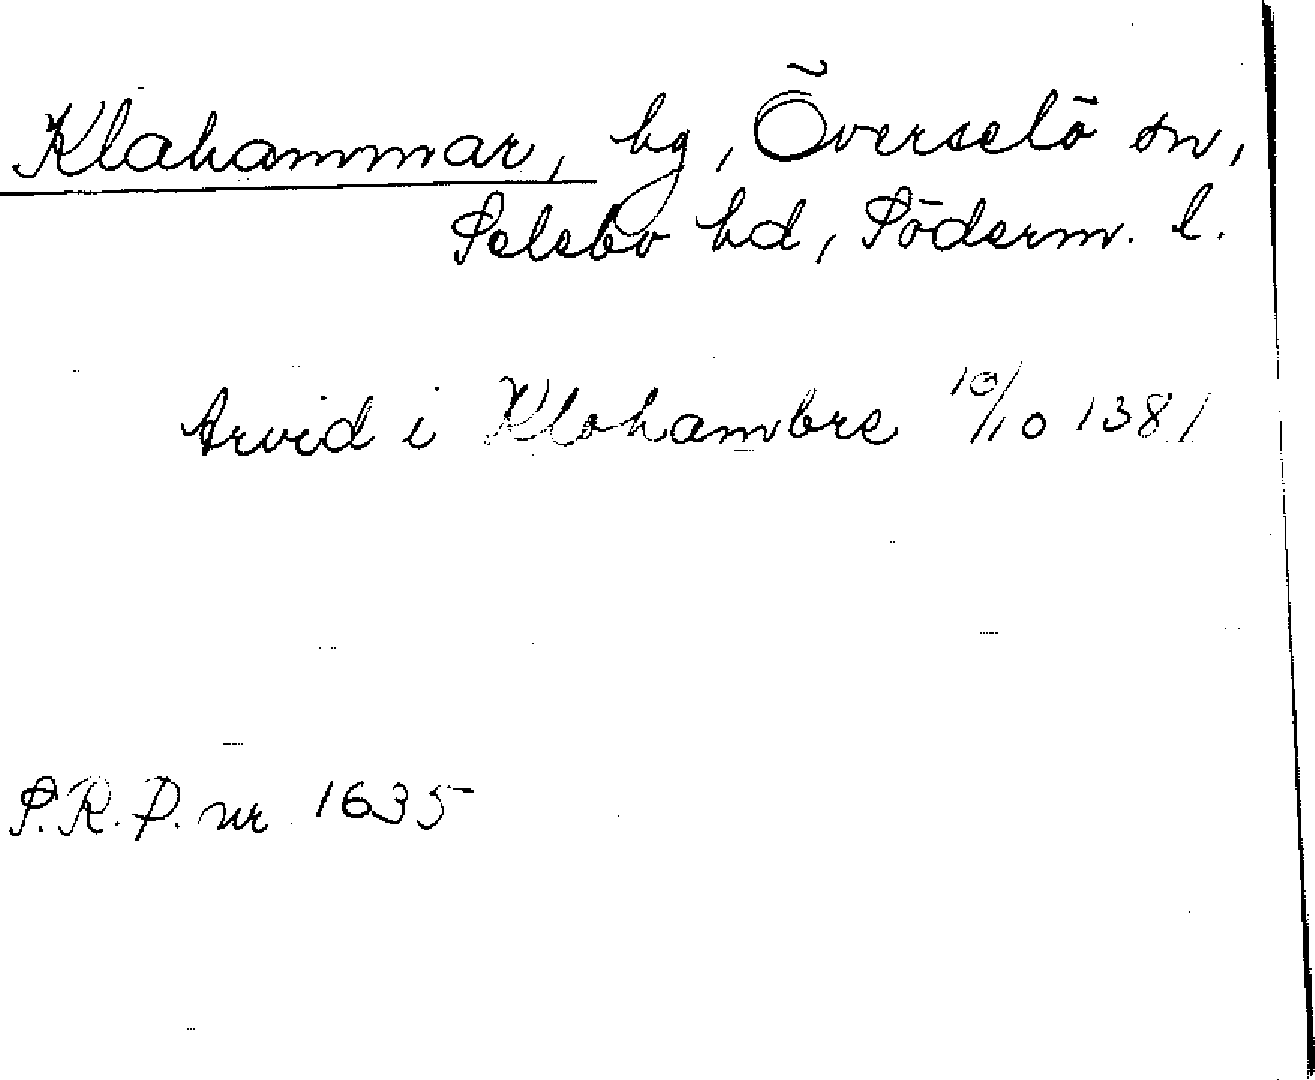 Klahammar, hg, Överselö sn,
Selebo hd, Söderm. l.
Arvid i Klohambre 10/10 1381
S.R.P. nr 1635